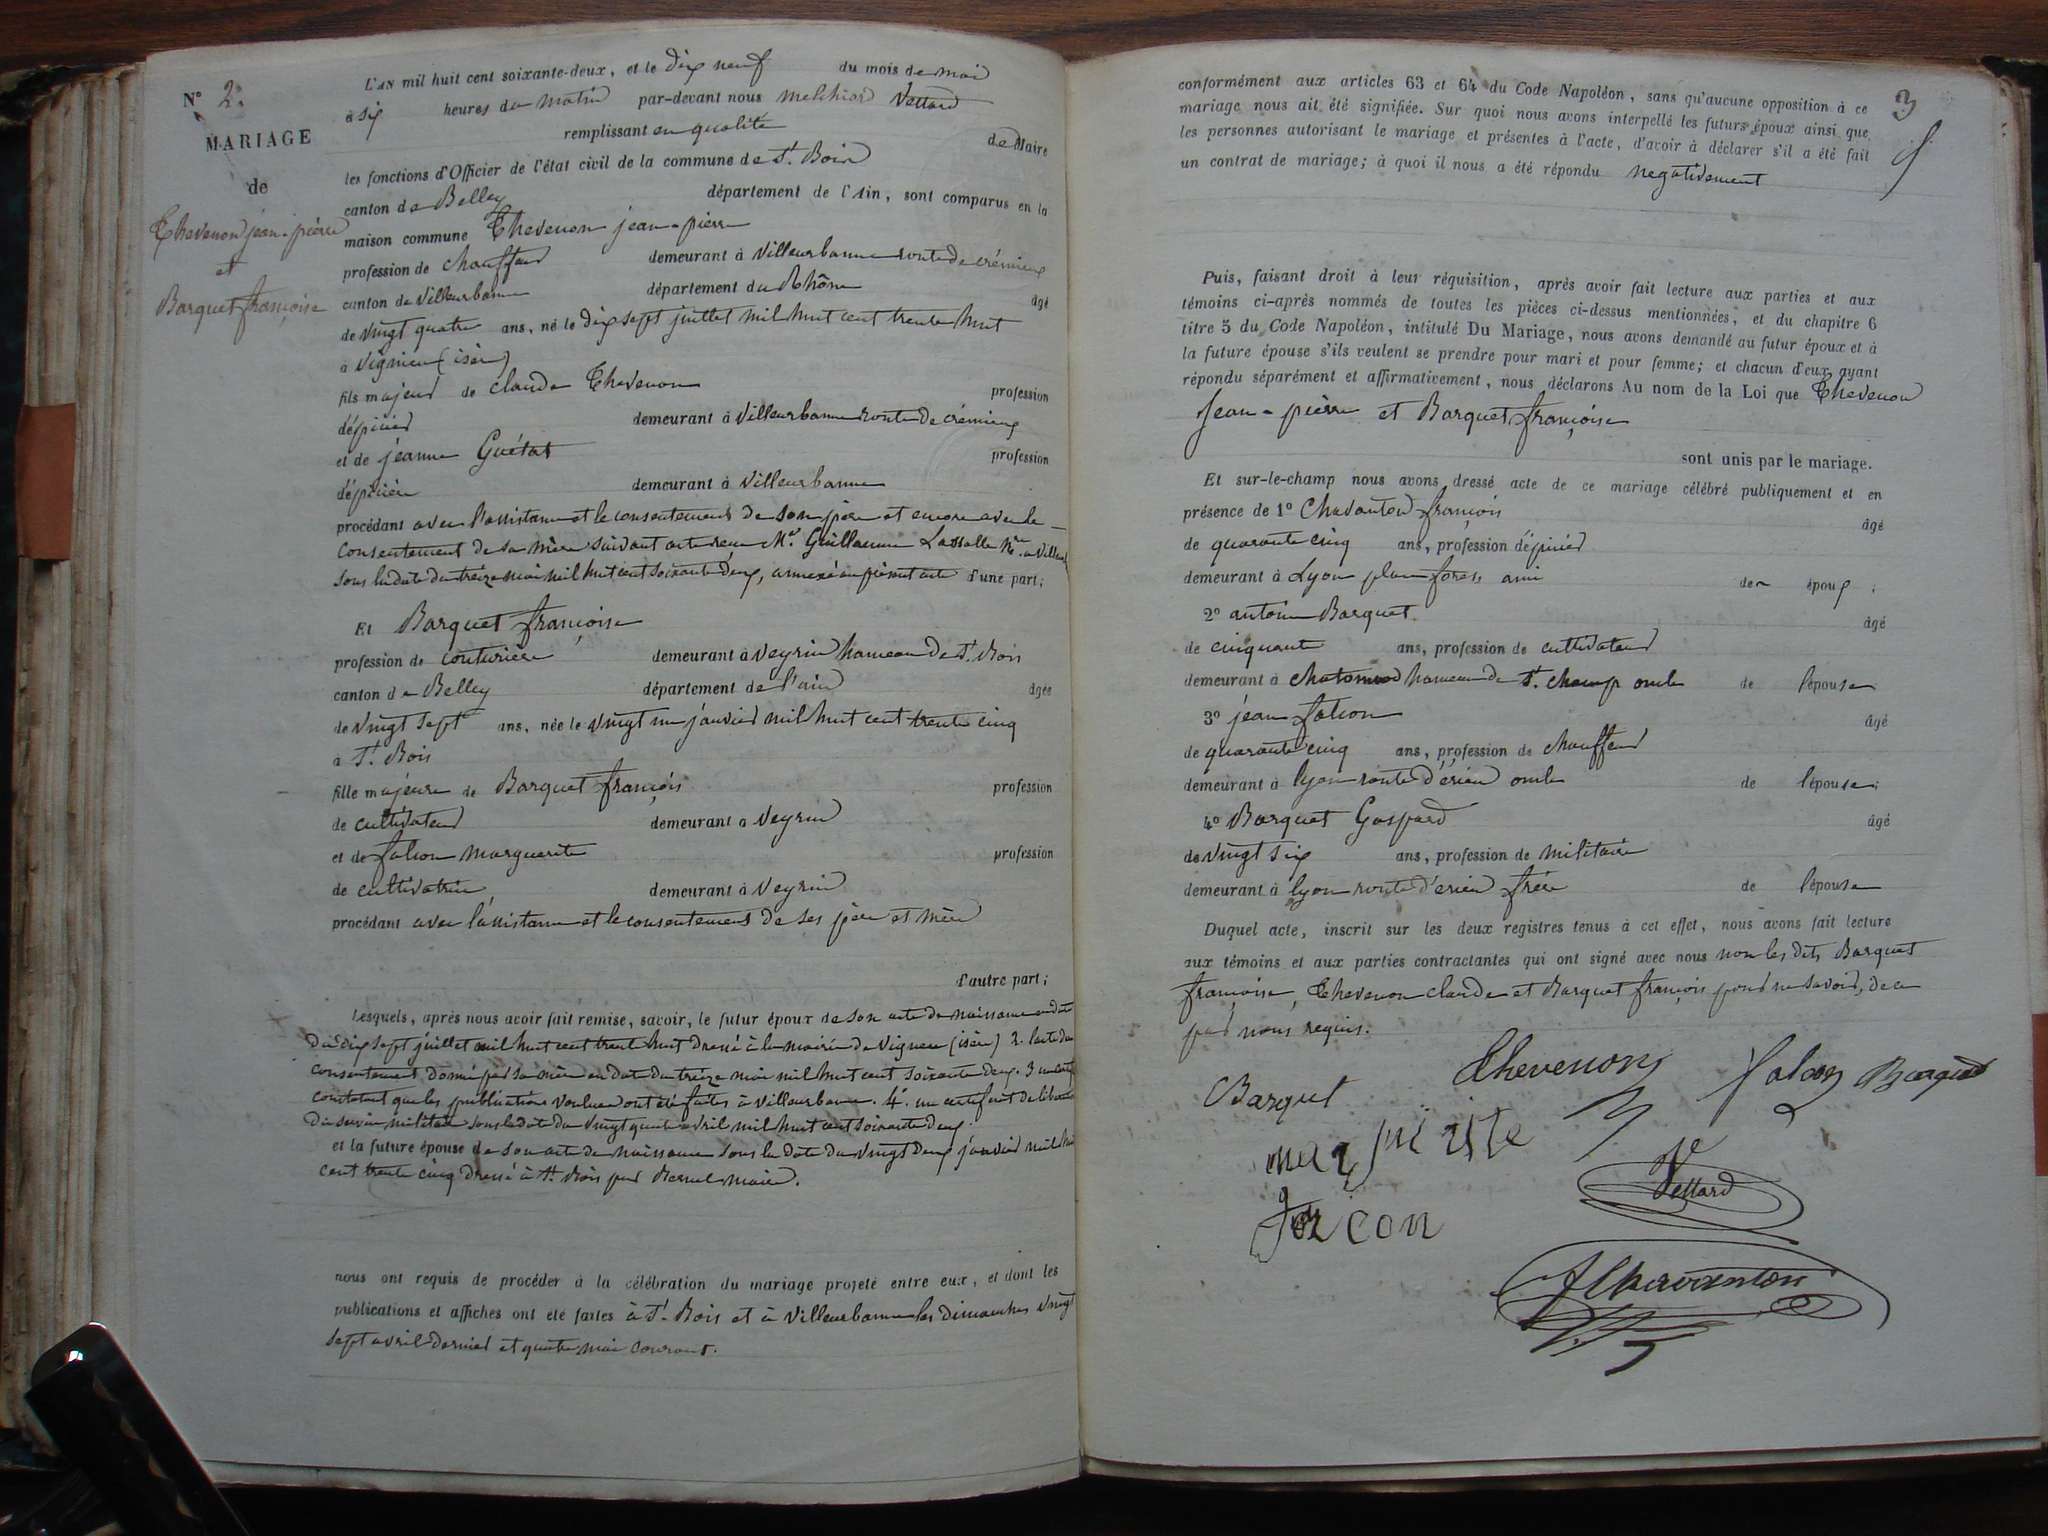 N° 2.
MARIAGE
de
Thevenon jean-pièrre
et
Barquet françoise
L'AN mil huit cent soixante-deux, et le dix neuf du mois de mai
à six heures du matin par-devant nous melchior Vettard
remplissant en qualité de Maire
les fonctions d'Officier de l'état civil de la commune de St. Bois
canton de Belley département de l'Ain, sont comparus en la
maison commune Thevenon jean-pierre
profession de chauffeur demeurant à Villeurbanne route de crémieux
canton de Villeurbanne département du Rhône âgé
de vingt quatre ans, né le dix sept juillet mil huit cent trente huit
à Vignieu (isère)
fils majeur de claude Thevenon profession
d'épicier demeurant à Villeurbanne route de crémieux
et de jeanne Guétat profession
d'épicière demeurant à Villeurbanne
procédant avec l'assistance et le consentement de son père et encore avec le
consentement de sa mère suivant acte reçu Me. Guillaume Lassalle Nre. a Villeur
sous la date du treize mai mil huit cent soixante deux, annexé au présent acte d'une part;
Et Barquet françoise
profession de couturière demeurant à Veyrin hameau de St. Bois
canton de Belley département de l'ain âgée
de vingt sept ans, née le vingt un janvier mil huit cent trente cinq
à St. Bois
fille majeure de Barquet françois profession
de cultivateur demeurant à Veyrin
et de falcon marguerite profession
de cultivatrice demeurant à Veyrin
procédant avec l'assistance et le consentement de ses père et mère
d'autre part;
Lesquels, après nous avoir fait remise, savoir, le futur époux de son acte de naissance en date
du dix sept juillet mil huit cent trente huit Dressé à la mairie de Vignieu (isère) 2. l'acte du
consentement donné par sa mère en date du treize mai mil huit cent soixante deux. 3 un
constatant que les publications voulues ont été faites à Villeurbanne. 4°. un certificat de libération
du service militaire sous la date du vingt quatre avril mil huit cent soixante deux.
et la future épouse de son acte de naissance sous la date du vingt deux janvier mil hui
cent trente cinq dressé à St. Bois par maire.
nous ont requis de procéder à la célébration du mariage projeté entre eux, et dont les
publications et affiches ont été faites à St. Bois et à Villeurbanne les dimanches vingt
sept avril dernier et quatre mai courant.
3
conformément aux articles 63 et 64 du Code Napoléon, sans qu'aucune opposition à ce
mariage nous ait été signifiée. Sur quoi nous avons interpellé les futurs époux ainsi que
les personnes autorisant le mariage et présentes à l'acte, d'avoir à déclarer s'il a été fait
un contrat de mariage; à quoi il nous a été répondu negativement
Puis, faisant droit à leur réquisition, après avoir fait lecture aux parties et aux
témoins ci-après nommés de toutes les pièces ci-dessus mentionnées, et du chapitre 6
titre 5 du Code Napoléon, intitulé Du Mariage, nous avons demandé au futur époux et à
la future épouse s'ils veulent se prendre pour mari et pour femme; et chacun d'eux ayant
répondu séparément et affirmativement, nous déclarons Au nom de la Loi que Thevenon
Jean-pièrre et Barquet françoise
sont unis par le mariage.
Et sur-le-champ nous avons dressé acte de ce mariage célébré publiquement et en
présence de 1° Chavanton françois âgé
de quarante cinq ans, profession d'épicier
demeurant à Lyon ami de l' époux;
2° antoine Barquet âgé
de cinquante ans, profession de cultivateur
demeurant à hameau de St. champ oncle de l'épouse
3° jean falcon âgé
de quarante cinq ans, profession de chauffeur
demeurant à lyon route d'érieu oncle de l'épouse;
4° Barquet Gaspard âgé
de vingt six ans, profession de militaire
demeurant à lyon route d'erieu frère de l'épouse
Duquel acte, inscrit sur les deux registres tenus à cet effet, nous avons fait lecture
aux témoins et aux parties contractantes qui ont signé avec nous non les dits Barquet
françoise, Thevenon claude et Barquet françois pour ne savoir, de ce
par nous requis.
Barquet Thevenon falcon Barquet
marguerite
falcon
Vettard
f Chavanton